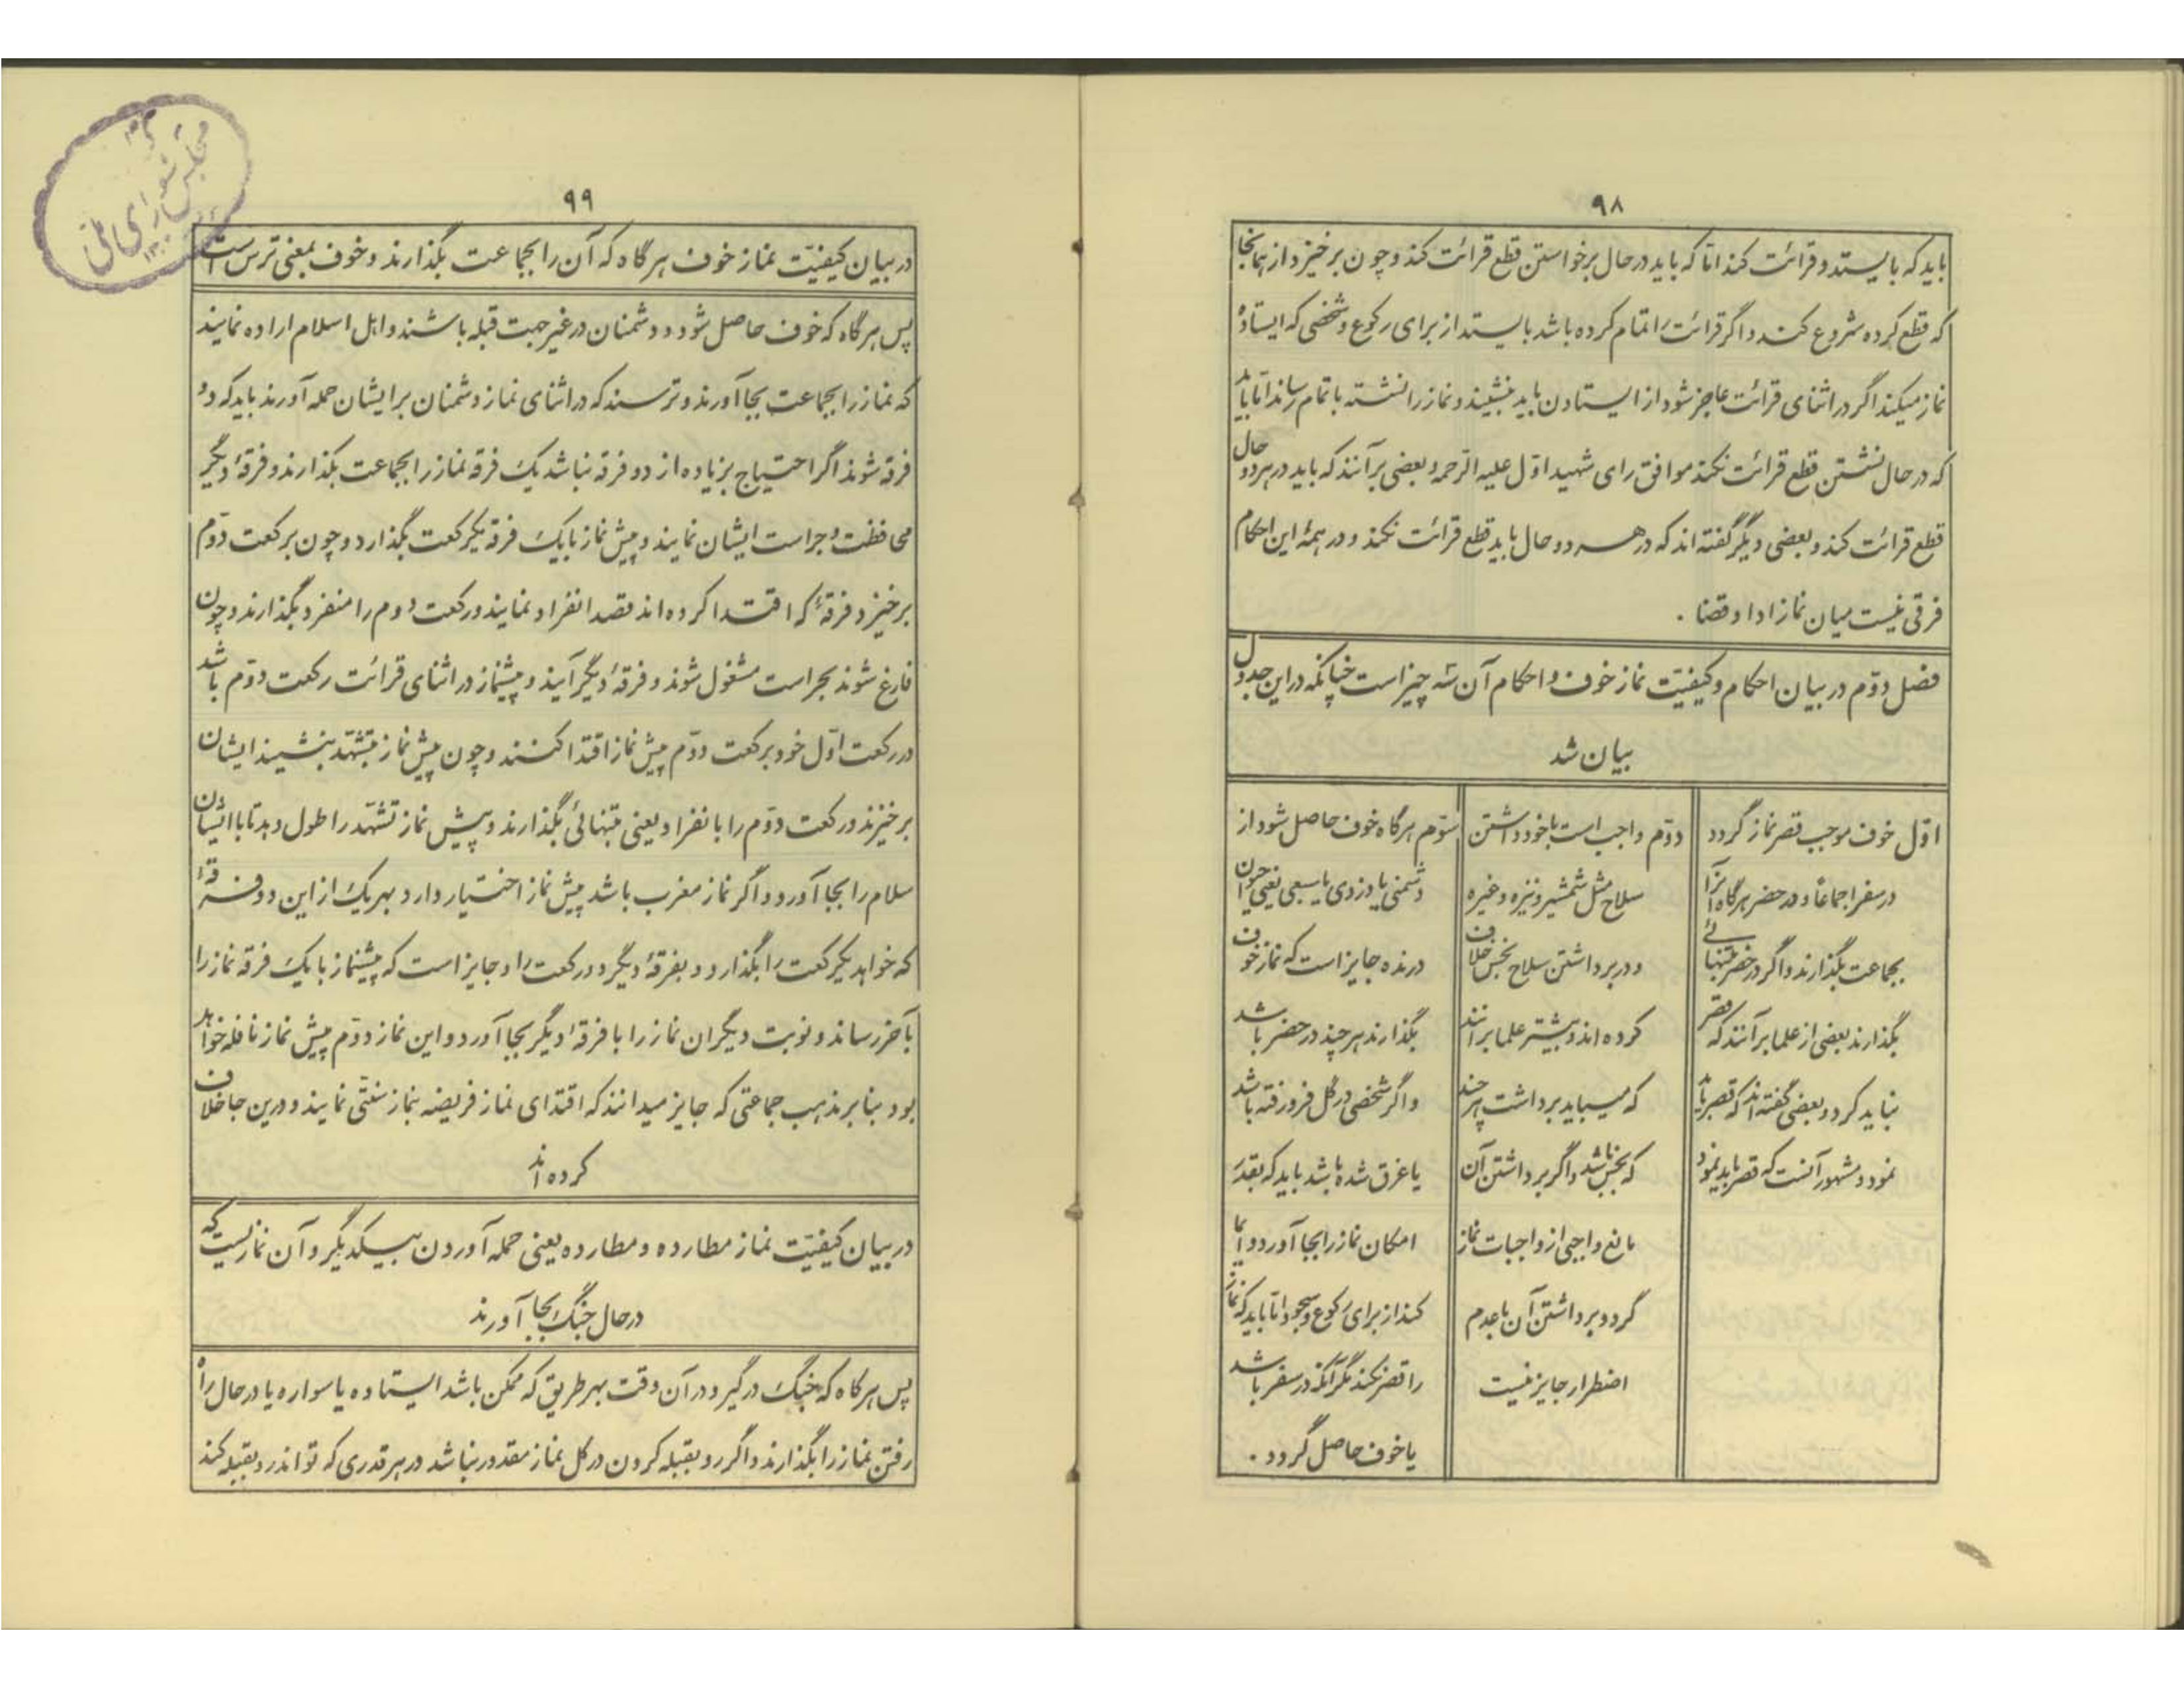 ۹۸
باید که بایستد و قرائت کند امّا که باید در حال برخواستن قطع قرائت کند و چون برخیزد از همانجا
که قطع کرده شروع کند و اگر قرائت را تمام کرده باشد بایستد از برای رکوع و شخصی که ایستاده
نماز میکند اگر در اثنای قرائت عاجز شود از ایستادن باید بنشیند و نماز را نشسته باتمام رساند امّا باید
که در حال نشستن قطع قرائت نکند موافق رای شهید اوّل علیه الرّحمه و بعضی برآنند که باید در هر دو حال
قطع قرائت کند و بعضی دیگر گفته اند که در هر دو حال باید قطع قرائت نکند و در همهٔ این احکام
فرقی نیست میان نماز ادا و قضا .
فصل دوّم در بیان احکام و کیفیّت نماز خوف و احکام آن سه چیز است چنانکه در این جدول
بیان شد
اوّل خوف موجب قصر نماز گردد
در سفر اجماعاً و در حضر هرگاه آنرا
بجماعت بگذارند و اگر در حضر بتنهائی
بگذارند بعضی از علما برآنند که قصر
نباید کرد و بعضی گفته اند که قصر باید
نمود و مشهور آنست که قصر باید نمود
دوّم واجب است با خود داشتن
سلاح مثل شمشیر و نیزه و غیره
و در برداشتن سلاح نجس خلاف
کرده اند و بیشتر علما برآنند
که میباید برداشت هر چند
که نجس باشد و اگر برداشتن آن
مانع واجبی از واجبات نماز
گردد برداشتن آن با عدم
اضطرار جایز نیست
سوّم هرگاه خوف حاصل شود از
دشمنی یا دزدی یا سبعی یعنی حیوان
درنده جایز است که نماز خوف
بگذارند هر چند در حضر باشد
و اگر شخصی در گل فرو رفته باشد
یا غرق شده باشد باید که بقدر
امکان نماز را بجا آورد و ایما
کند از برای رکوع و سجود امّا باید که نماز
را قصر نکند مگر آنکه در سفر باشد
یا خوف حاصل گردد .
۹۹
در بیان کیفیّت نماز خوف هرگاه که آن را بجماعت بگذارند و خوف بمعنی ترس است
پس هرگاه که خوف حاصل شود و دشمنان در غیر جهت قبله باشند و اهل اسلام اراده نمایند
که نماز را بجماعت بجا آورند و ترسند که در اثنای نماز دشمنان بر ایشان حمله آورند باید که دو
فرقه شوند اگر احتیاج بزیاده از دو فرقه نباشد یک فرقه نماز را بجماعت بگذارند و فرقهٔ دیگر
محافظت و حراست ایشان نمایند و پیش نماز با یک فرقه یکرکعت بگذارد و چون برکعت دوّم
برخیزد فرقهٔ که اقتدا کرده اند قصد انفراد نمایند و رکعت دوم را منفرد بگذارند و چون
فارغ شوند بحراست مشغول شوند و فرقهٔ دیگر آیند و پیشنماز در اثنای قرائت رکعت دوّم باشد
در رکعت اوّل خود برکعت دوّم پیش نماز اقتدا کنند و چون پیش نماز بتشهّد بنشیند ایشان
برخیزند و رکعت دوّم را بانفراد یعنی بتنهائی بگذارند و پیش نماز تشهّد را طول دهد تا با ایشان
سلام را بجا آورد و اگر نماز مغرب باشد پیش نماز اختیار دارد بهر یک از این دو فرقهٔ
که خواهد یکرکعت را بگذارد و بفرقهٔ دیگر دو رکعت را و جایز است که پیشنماز با یک فرقه نماز را
بآخر رساند و نوبت دیگر آن نماز را با فرقهٔ دیگر بجا آورد و این نماز دوّم پیش نماز نافله خواهد
بود بنابر مذهب جماعتی که جایز میدانند که اقتدای نماز فریضه بنماز سنّتی نمایند و درین جا خلاف
کرده اند
در بیان کیفیّت نماز مطارده و مطارده یعنی حمله آوردن بیکدیگر و آن نمازیست که
در حال جنگ بجا آورند
پس هرگاه که جنگ درگیرد در آن وقت بهر طریق که ممکن باشد ایستاده یا سواره یا در حال راه
رفتن نماز را بگذارند و اگر رو بقبله کردن در کل نماز مقدور نباشد در هر قدری که تواند رو بقبله کند
مجلس شورای ملی